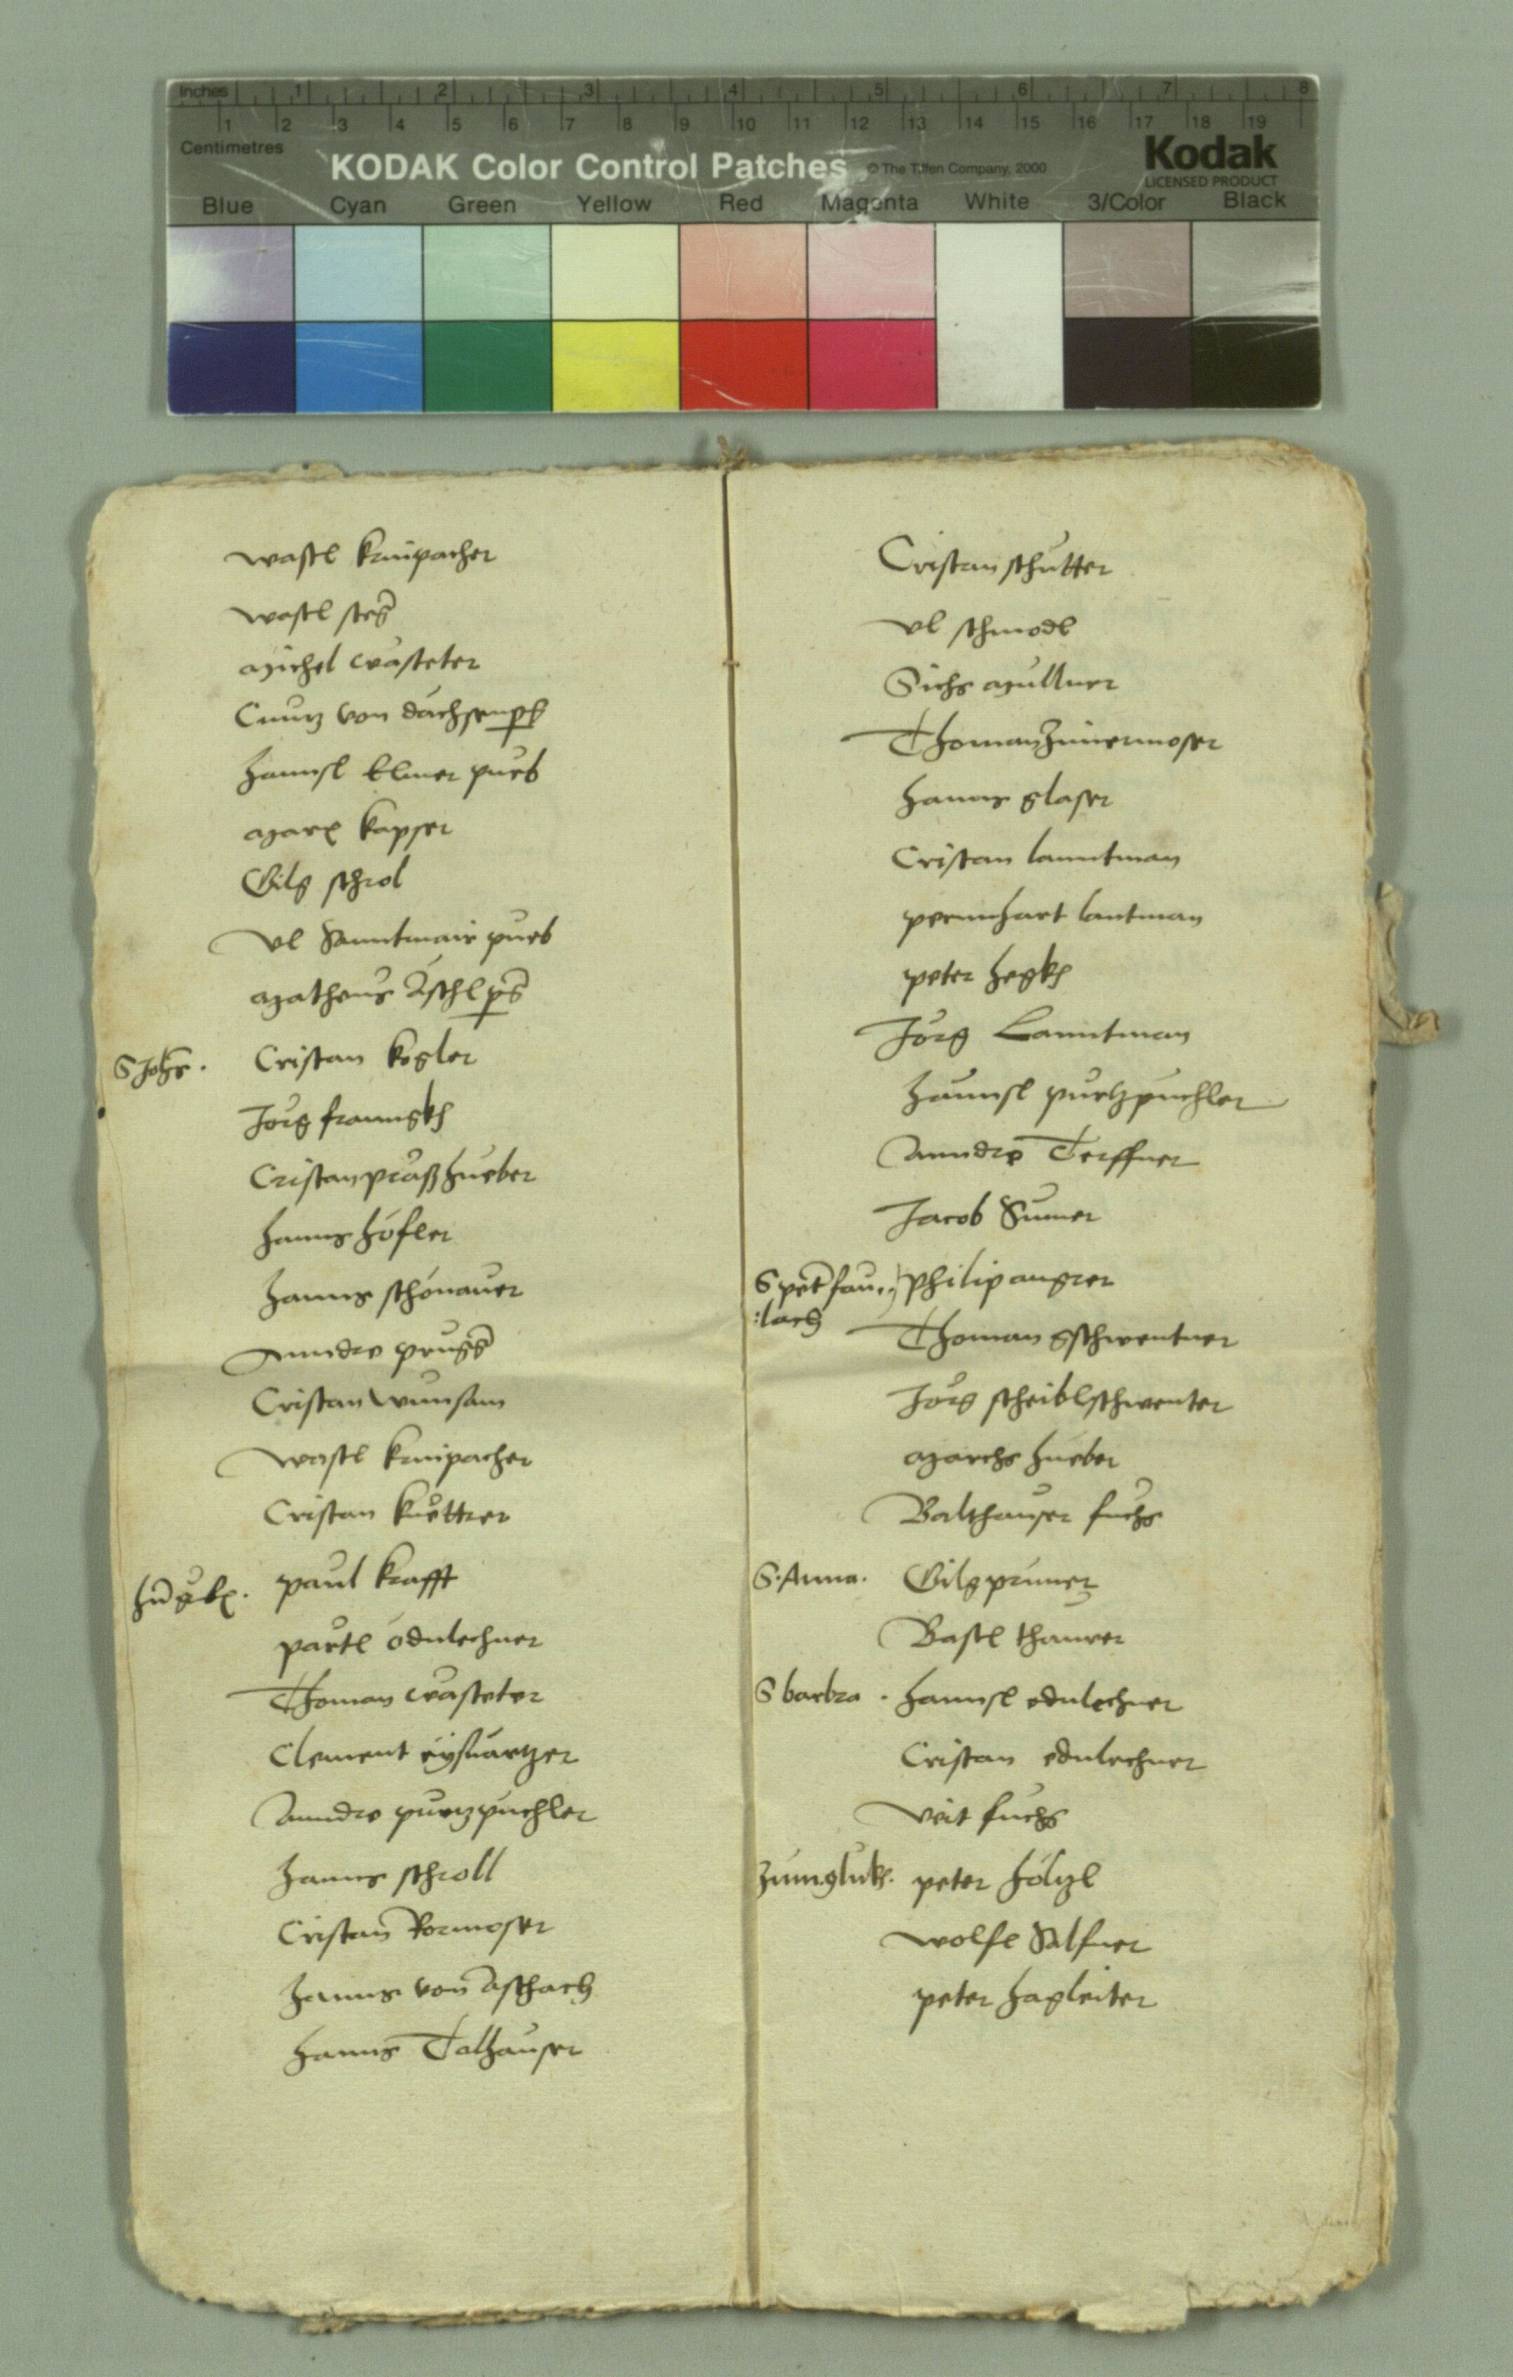 Inches 1 2 3 4 5 6 7 8
1 2 3 4 5 6 7 8 9 10 11 12 13 14 15 16 17 18 19
Centimetres
KODAK Color Control Patches © The Tiffen Company, 2000
Kodak
LICENSED PRODUCT
Blue Cyan Green Yellow Red Magenta White 3/Color Black
wastl knipacher
wastl steg
Michel crasteter
Cuntz von dachsen
hannsl Elmer pueb
Marx kapser
Gilg schrol
Vl Sanntmair pueb
Matheus Äschl
S Johs. Cristan kogler
Jorg franngkh
Cristan praßhueber
hanns höfler
hanns schönauer
Anndre prugg
Cristan wunsam
wastl knipacher
Cristan kuettrer
paul krafft
partl ödnlechner
Thoman crasteter
Clement
Anndre purtzpuchler
hanns schroll
Cristan Rormoser
hanns von Aschach
hanns Talhauser
Cristan schutter
Vl schmodl
Sichs Mullner
Thoman Zimermoser
hanns glaser
Cristan lanntman
pernnhart lantman
peter hegkh
Jörg Lanntman
hannsl purtzpuchler
Anndre Terffner
Jacob Sumer
S pet fau.. philip angrer
:lach
Thoman gschwentner
Jörg scheiblschwenter
Marchs hueber
Balthauser fuchs
S. Anna. Gilg pruner
Bastl thaurer
S barbra. hannsl ednlechner
Cristan ednlechner
veit fuchs
Zumglukh. peter höltzl
wolfl Salfner
peter hagleiter